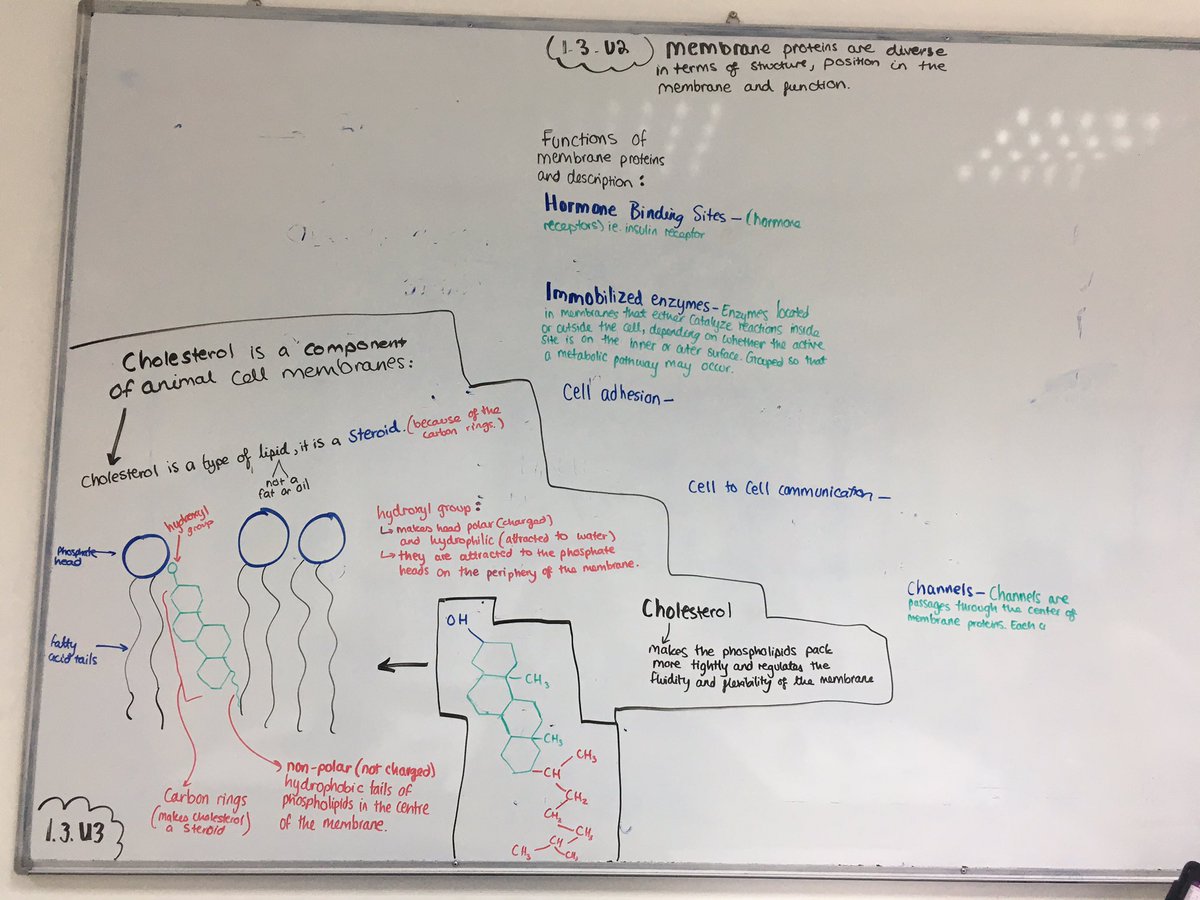 (1.3.U2) Membrane proteins are diverse
in terms of structure, position in the
membrane and function.
Functions of
membrane proteins
and description:
Hormone Binding Sites - (hormone
receptors) ie. insulin receptor
Immobilized enzymes - Enzymes located
in membranes that either catalyze reactions inside
or outside the cell, depending on whether the active
site is on the inner or outer surface. Grouped so that
a metabolic pathway may occur.
Cell adhesion -
Cell to cell communication -
Channels - Channels are
passages through the center of
membrane proteins. Each c
Cholesterol is a component
of animal cell membranes:
Cholesterol is a type of lipid, it is a steroid. (because of the
carbon rings.)
not a
fat or oil
hydroxyl
group
Phosphate
head
fatty
acid tails
hydroxyl group:
↳ makes head polar (charged)
and hydrophilic (attracted to water)
↳ they are attracted to the phosphate
heads on the periphery of the membrane.
Cholesterol
makes the phospholipids pack
more tightly and regulates the
fluidity and flexibility of the membrane
OH
CH3
CH3
CH
CH3
CH2
CH2
CH2
CH
CH3
CH3
Carbon rings
(makes cholesterol
a steroid)
non-polar (not charged)
hydrophobic tails of
phospholipids in the centre
of the membrane.
1.3.U3